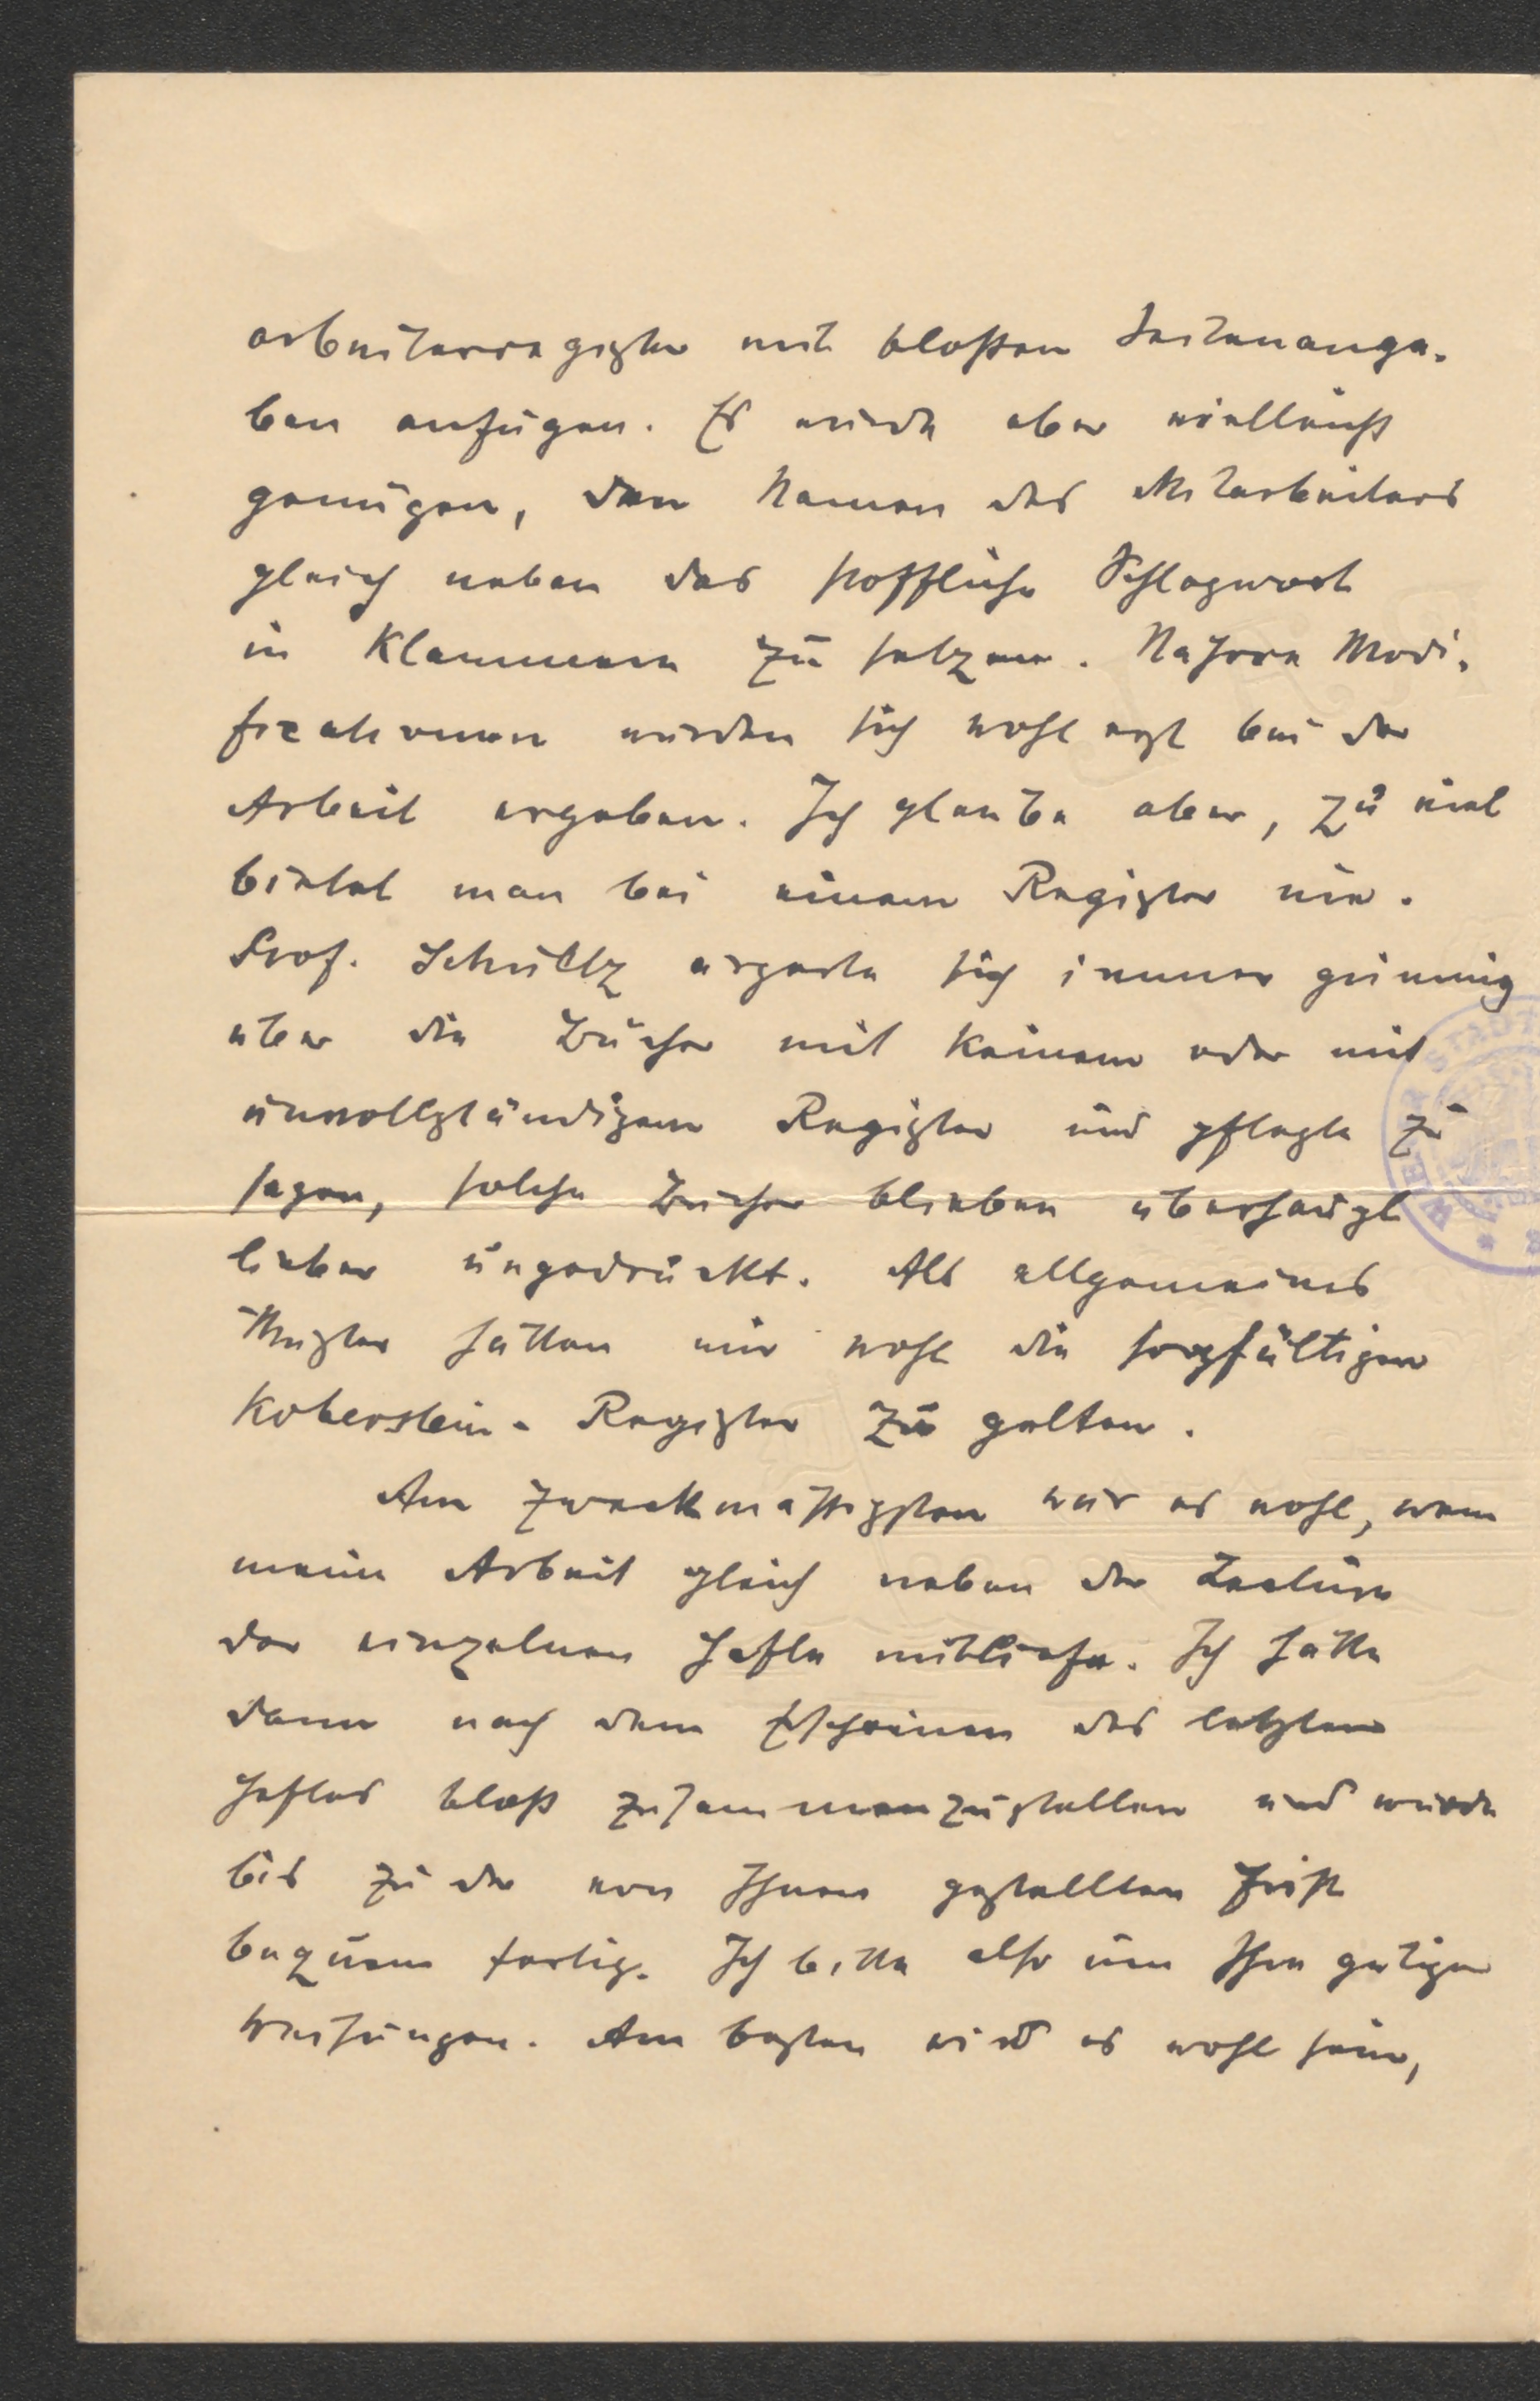 arbeiterregister mit bloßen Seitenanga-
ben anfügen. Es würde aber vielleicht
genügen, den Namen des Mitarbeiters
gleich neben das stoffliche Schlagwort
in Klammern zu setzen. Nähere Modi-
ficationen würden sich wohl erst bei der
Arbeit ergeben. Ich glaube aber, zu viel
bietet man bei einem Register nie.
Prof. Schultz ärgerte sich immer grimmig
über die Bücher mit keinem oder mit
unvollständigem Register und pflegte zu
sagen, solche Bücher blieben überhaupt
lieber ungedruckt. Als allgemeines
Muster hätten mir wohl die sorgfältigen
Koberstein-Register zu gelten.
Am zweckmäßigsten wär es wohl, wenn
meine Arbeit gleich neben der Lectüre
der einzelnen Hefte mitliefe. Ich hätte
dann nach dem Erscheinen des letzten
Heftes bloß zusammenzustellen und würde
bis zu der von Ihnen gestellten Frist
bequem fertig. Ich bitte also um Ihre gütigen
Weisungen. Am besten wird es wohl sein,
WIENER STADT